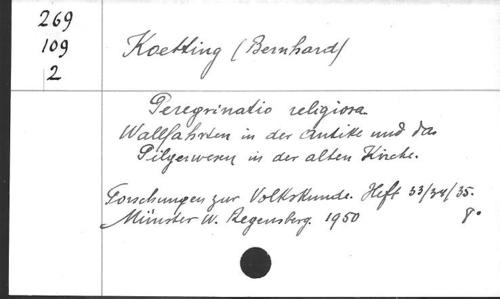 269
109
2
Koetting (Bernhard)
Peregrinatio religiosa
Wallfahrten in der Antike und das
Pilgerwesen in der alten Kirche.
Forschungen zur Volkskunde. Heft 33/34/35.
Münster W. Regensberg. 1950 8°